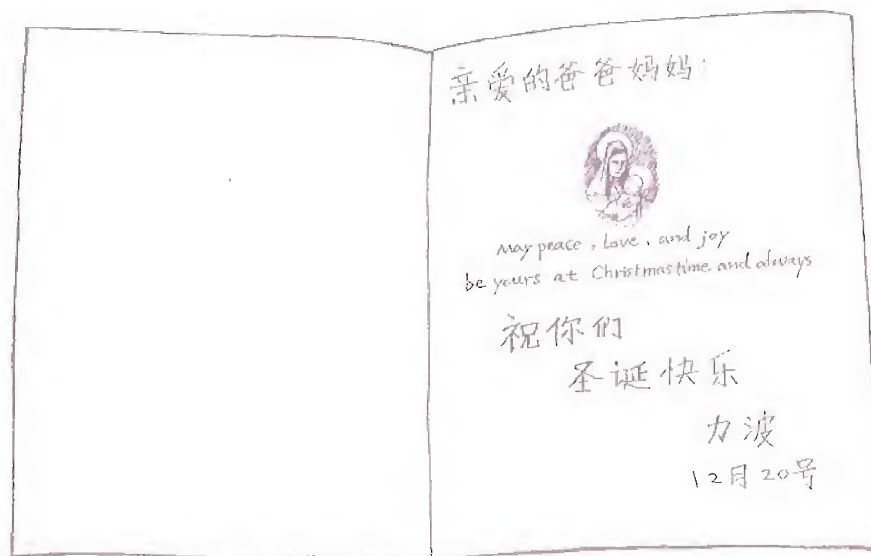 亲爱的爸爸妈妈：
May peace, love, and joy
be yours at Christmas time and always
祝你们
圣诞快乐
力波
12月20号